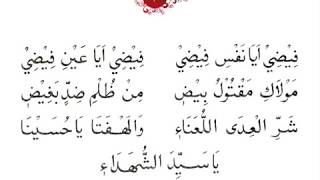 فِيْضِيْ اَيَا نَفْسِ فِيْضِيْ فِيْضِيْ اَيَا عَيْنِ فِيْضِيْ
مَوْلَاكِ مَقْتُوْلُ بِيْضٍ مِنْ ظُلْمِ ضِدٍّ بَغِيْضٍ
شَرِّ الْعِدَى اللُّعَنَاءِ وَالَهْفَتَا يَا حُسَيْنَا
يَا سَيِّدَ الشُّهَدَاءِ